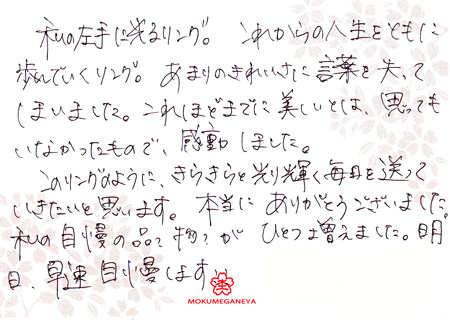 私の左手に光るリング。これからの人生をともに
歩んでいくリング。あまりのきれいさに言葉を失って
しまいました。これほどまでに美しいとは、思っても
いなかったもので、感動しました。
このリングのように、きらきらと光り輝く毎日を送って
いきたいと思います。本当にありがとうございました。
私の自慢の品?物?がひとつ増えました。明
日、早速自慢します
MOKUMEGANEYA